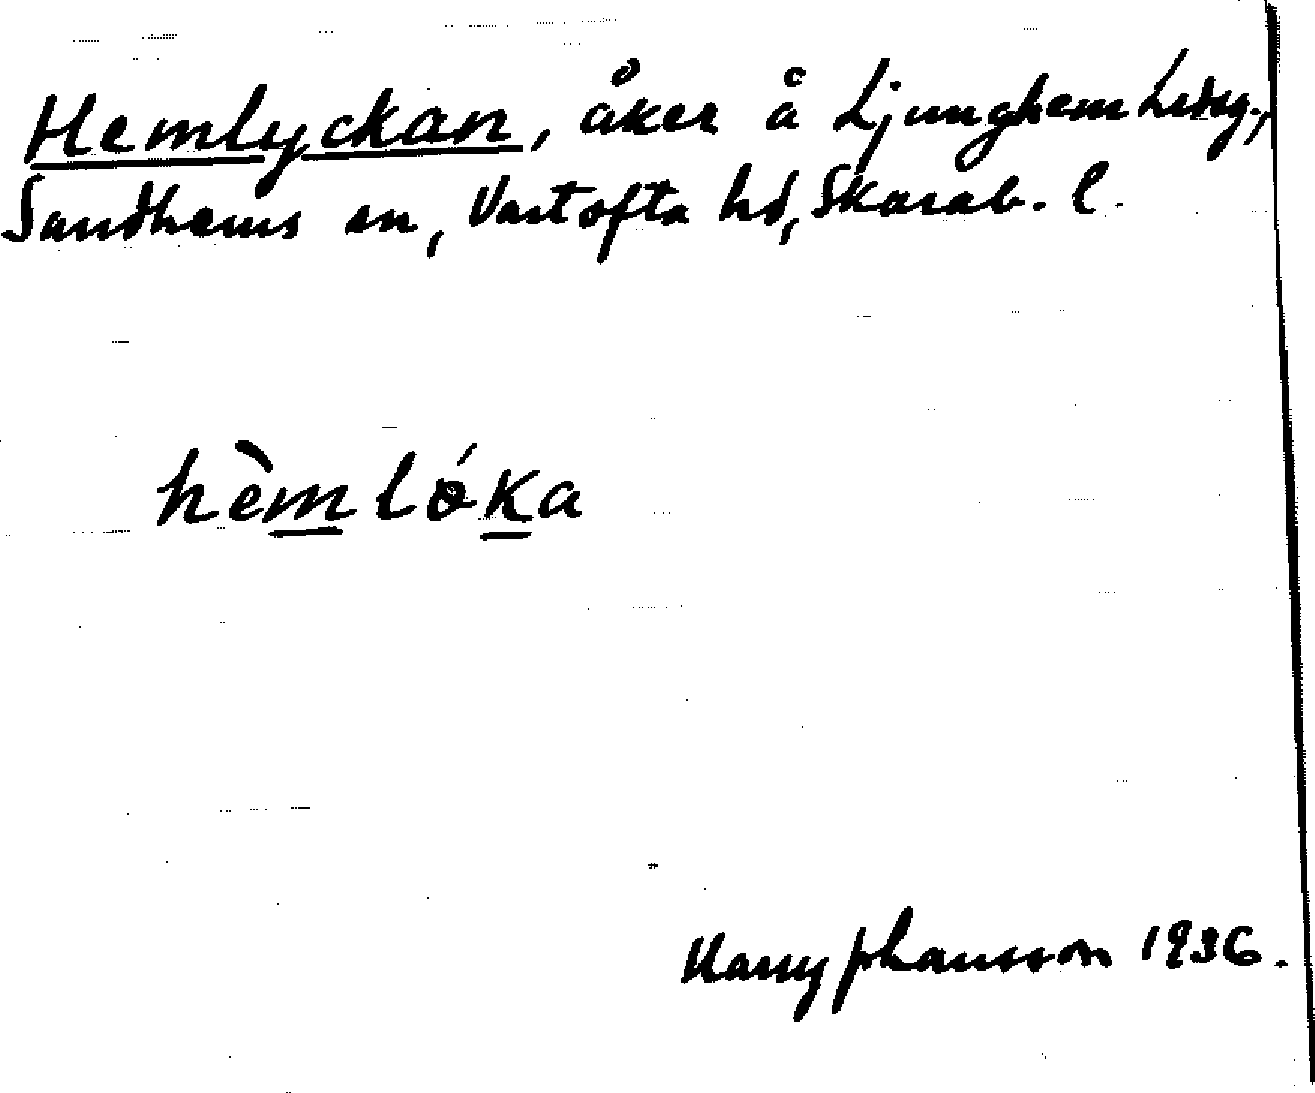 Hemlyckan, åker å Ljunghem Ledsg.,
Sandhems sn, Vartofta hd, Skarab. l.
hèmlǿka
Harry Johansson 1936.